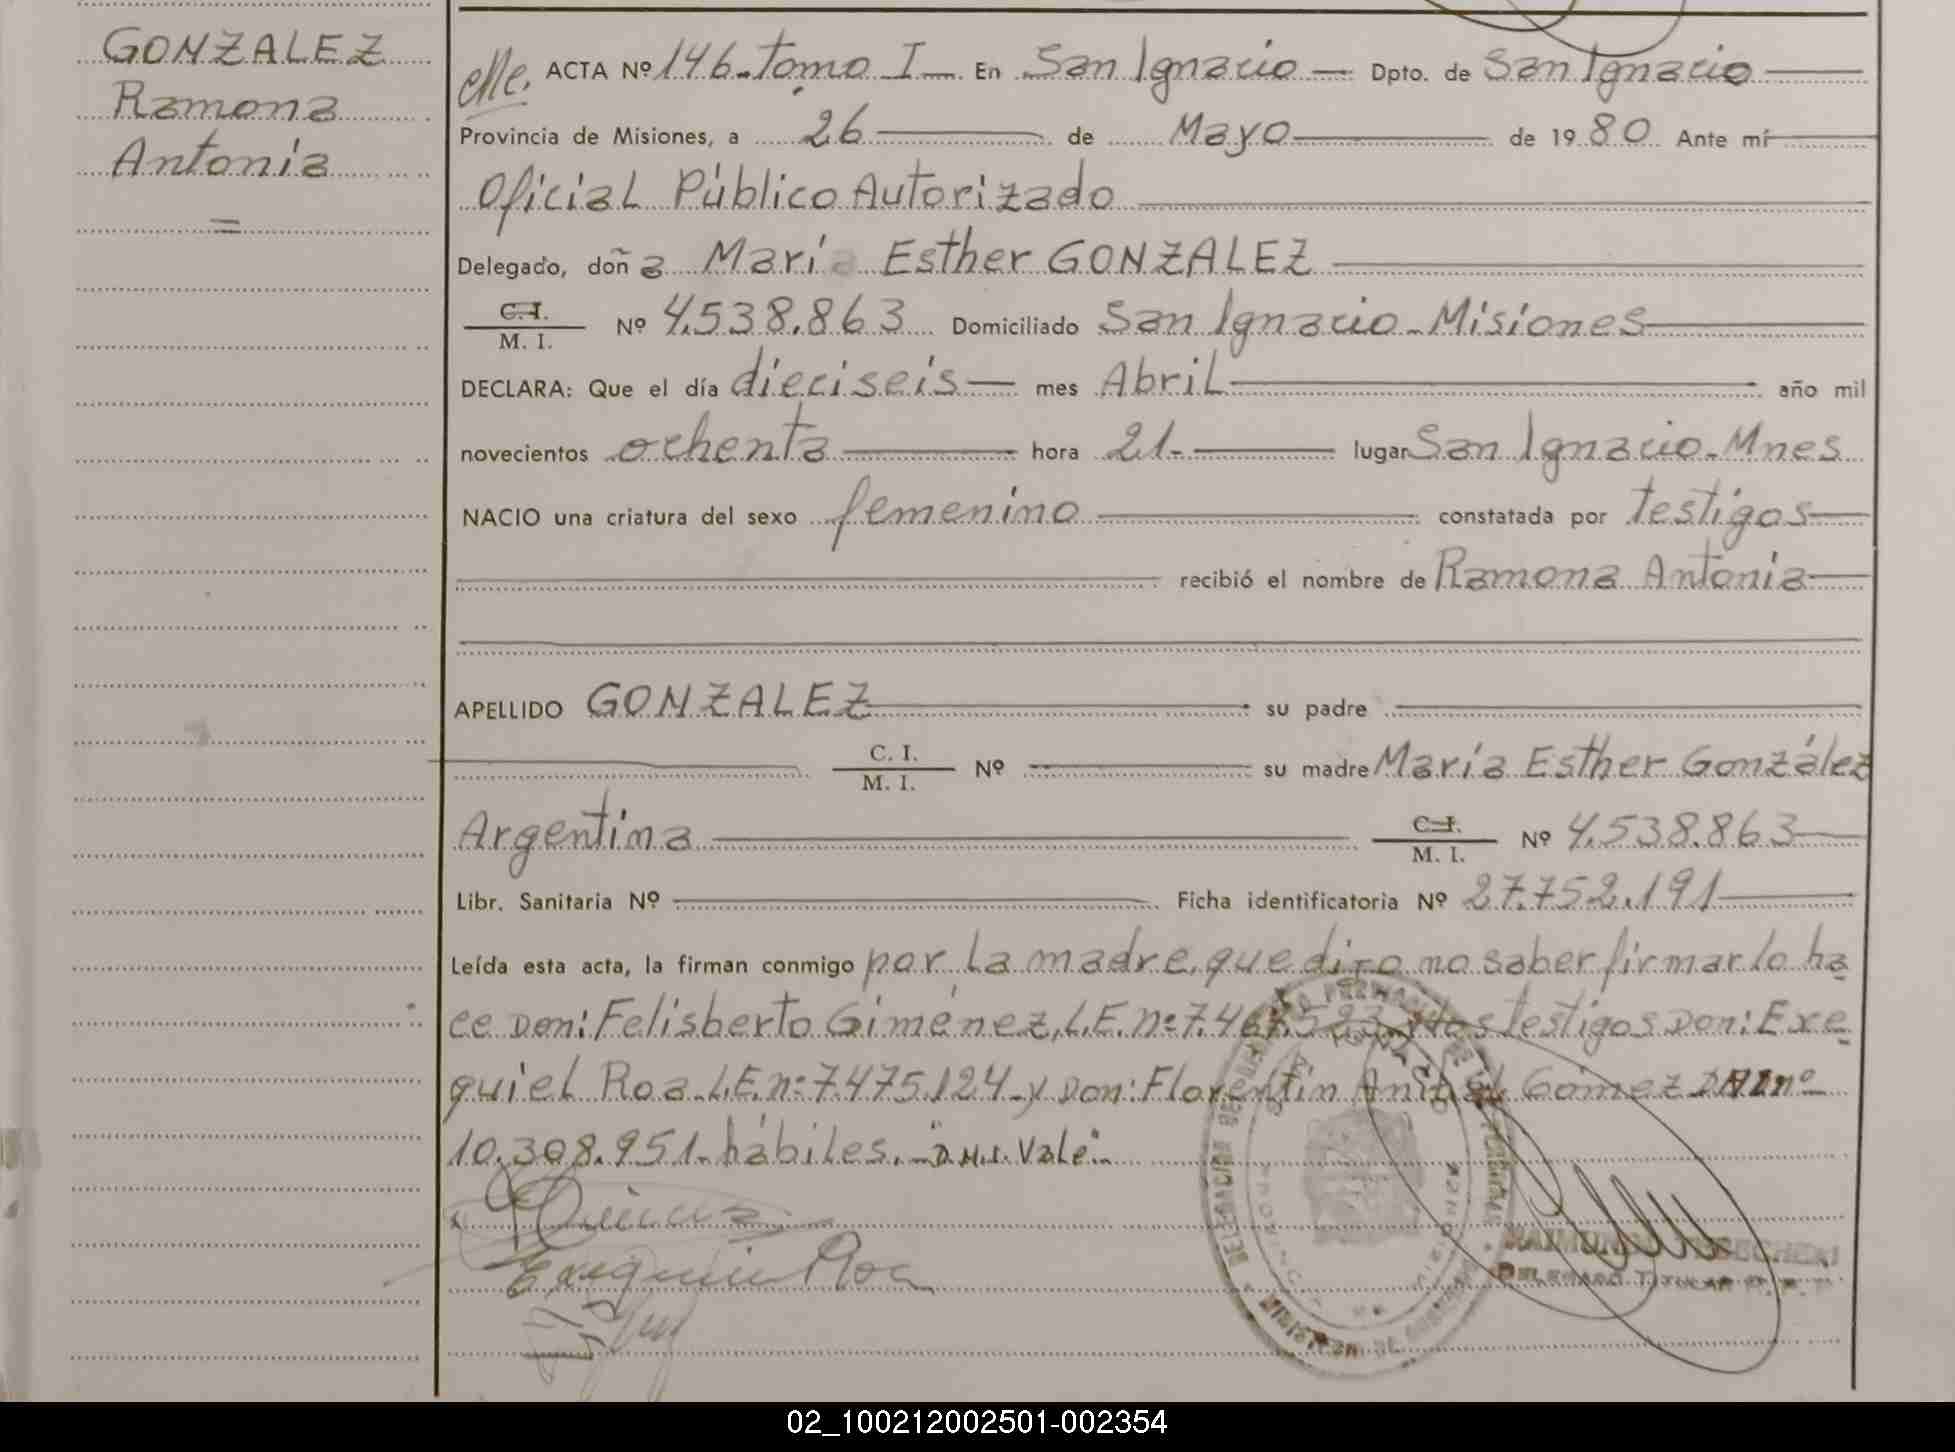 GONZALEZ
Ramona
Antonia
=
ACTA Nº 146-tomo I En San Ignacio Dpto. de San Ignacio
Provincia de Misiones, a 26 de Mayo de 1980 Ante mí
Oficial Público Autorizado
Delegado, doña María Esther GONZALEZ
C.I.
M. I. Nº 4.538.863 Domiciliado San Ignacio-Misiones
DECLARA: Que el día dieciseis mes Abril año mil
novecientos ochenta hora 21- lugar San Ignacio-Mnes
NACIO una criatura del sexo femenino constatada por testigos
recibió el nombre de Ramona Antonia
APELLIDO GONZALEZ su padre
C. I.
M. I. Nº su madre María Esther González
Argentina C.I.
M. I. Nº 4.538.863
Libr. Sanitaria Nº Ficha identificatoria Nº 27.752.191
Leída esta acta, la firman conmigo por la madre, que dijo no saber firmar lo ha
ce Don: Felisberto Giménez, L.E.nº 7.467.523 y los testigos Don: Exe
quiel Roa-L.E.nº 7.475.124-y Don: Florentín Anibal Gómez nº
10.308.951-hábiles.-"D.N.I. Vale"-
Exequiel Roa
DELEGADO TITULAR
02_100212002501-002354